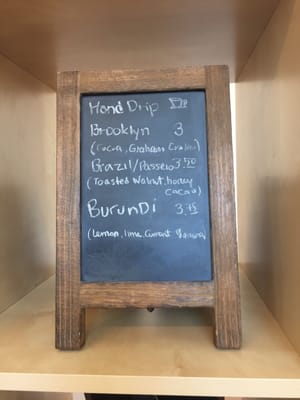 Hand Drip
Brooklyn 3
(Cocoa, Graham Cracker)
Brazil/Passeio 3.50
(Toasted Walnut, honey
cacao)
Burundi 3.75
(Lemon, lime, Currant